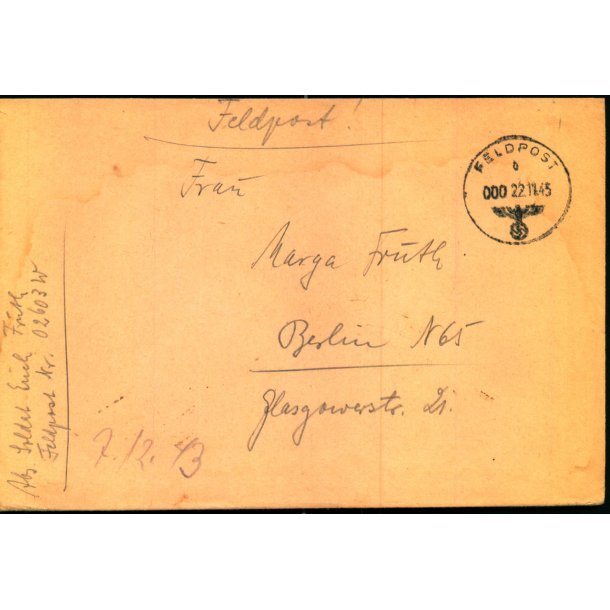 Feldpost!
FELDPOST
b
000 22.11.43
Frau
Marga Früth
Berlin N65
Glasgowerstr. 21.
Abs. Soldat Erich Früth
Feldpost Nr. 02603W
7.12.43